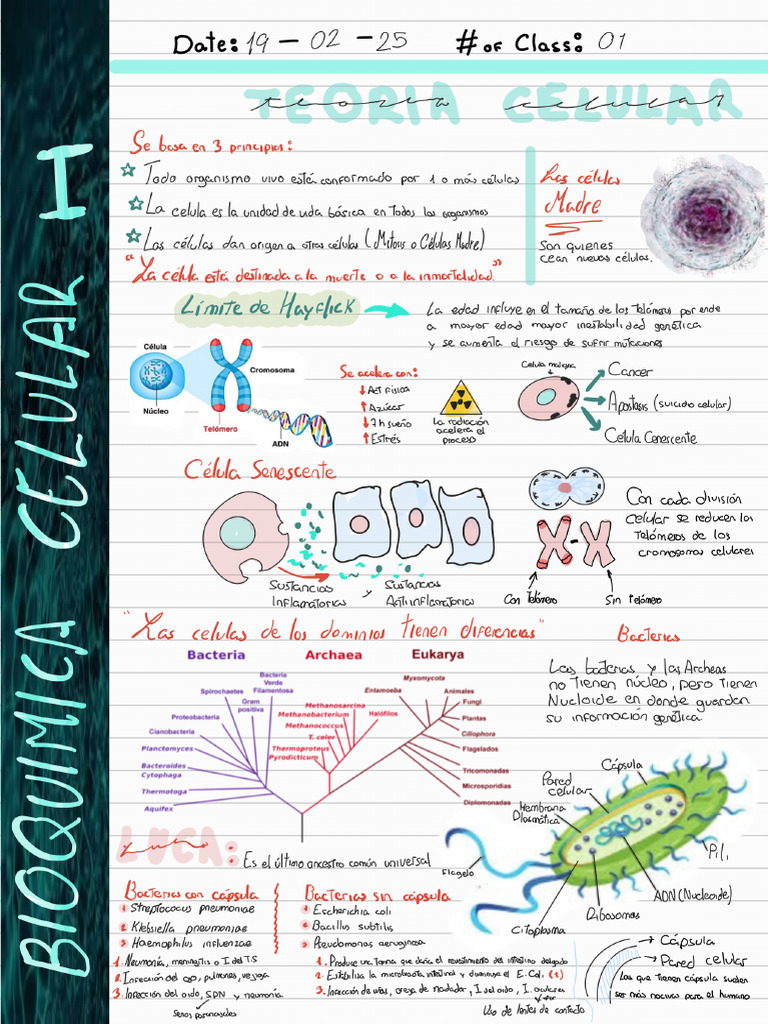 Date: 19 - 02 - 25 # of Class: 01
TEORIA CELULAR
teoria celular
BIOQUIMICA CELULAR H
Se basa en 3 principios:
☆ Todo organismo vivo está conformado por 1 o más células
☆ La celula es la unidad de vida básica en todos los organismos
☆ Las células dan origen a otras células (Mitosis o Células Madre)
"La célula está destinada a la muerte o a la inmortalidad."
Las células
Madre
Son quienes
crean nuevas células.
Límite de Hayflick
La edad influye en el tamaño de los telómeros por ende
a mayor edad mayor inestabilidad genética
y se aumenta el riesgo de sufrir mutaciones
Célula
Núcleo
Cromosoma
Telómero
ADN
Se acelera con:
↓ Act física
↑ Azúcar
↓ 7h sueño
↑ Estrés
La radiación
acelera el
proceso
Celula maligna
Cancer
Apostosis (suicidio celular)
Celula Cenescente
Célula Senescente
Sustancias
Inflamatorias
y
Sustancias
Antiinflamatorias
Con cada división
celular se reducen los
telómeros de los
cromosomas celulares
Con Telómero
Sin telómero
"Las celulas de los dominios tienen diferencias"
Bacteria
Archaea
Eukarya
Bacteria
Verde
Filamentosa
Spirochaetes
Gram
positiva
Proteobacteria
Cianobacteria
Planctomyces
Bacteroides
Cytophaga
Thermotoga
Aquifex
Methanosarcina
Methanobacterium
Halófilos
Methanococcus
T. celer
Thermoproteus
Pyrodicticum
Myxomycota
Entamoeba
Animales
Fungi
Plantas
Ciliophora
Flagelados
Tricomonadas
Microsporidias
Diplomonadas
Bacterias
Las bacterias y las Archeas
no tienen núcleo, pero tienen
Nucloide en donde guardan
su información genética.
LUCA:
Es el último ancestro común universal
Cápsula
Pared
celular
Membrana
Plasmática
Flagelo
Citoplasma
Ribosomas
ADN (Nucleoide)
Pili
Bacterias con cápsula
1 Streptococus pneumoniae
2 Klebsiella pneumoniae
3 Haemophilus influenzae
1. Neumonía, meningitis o I del T.S
2. Infección del ojo, pulmones, vejiga
3. Infección del oido, SPN y neumonía
Senos paranasales
Bacterias sin cápsula
1 Escherichia coli
2 Bacillus subtilis
3 Pseudomonas aeruginosa
1. Produce una toxina que daña el revestimiento del intestino delgado
2. Estabiliza la microbiota intestinal y disminuye el E. Coli (1)
3. Infección de vías, oreja de nadador, I del oido, I. oculares
Uso de lentes de contacto
Cápsula
Pared celular
Las que tienen cápsula suelen
ser más nocivas para el humano